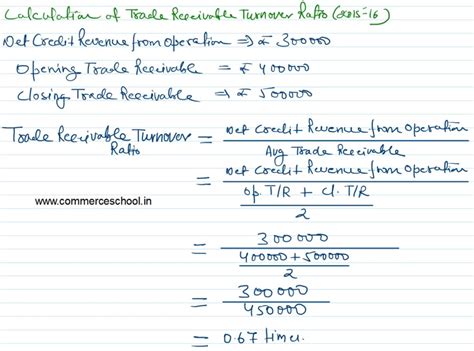 Calculation of Trade Receivable Turnover Ratio (2015-16)
Net Credit Revenue from Operation ⇒ ₹ 300000
Opening Trade Receivable = ₹ 400000
Closing Trade Receivable ⇒ ₹ 500000
Trade Receivable Turnover Ratio = Net Credit Revenue from Operation
Avg Trade Receivable
= Net Credit Revenue from Operation
Op. T/R + Cl. T/R
2
www.commerceschool.in
= 300000
400000 + 500000
2
= 300000
450000
= 0.67 times.